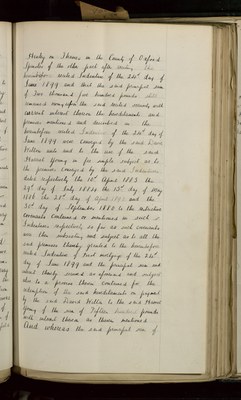 Henley on Thames in the County of Oxford
Spinster of the other part after reciting the
hereinbefore recited Indenture of the 24th day of
June 1899 and that the said principal sum
of Two thousand five hundred pounds still
remained owing upon the said recited security with
current interest thereon the hereditaments and
premises mentioned and described in the
hereinbefore recited Indenture of the 24th day of
June 1899 were conveyed by the said David
Witton unto and to the use of the said
Harriet Young in fee simple subject as to
the premises conveyed by the said Indentures
dated respectively the 10th April 1883 the
24th day of July 1883 the 13th day of May
1884 the 28th day of April 1885 and the
30th day of September 1880 to the restrictive
covenants contained or mentioned in such
Indentures respectively so far as such covenants
were then subsisting and subject as to all the
said premises thereby granted to the hereinbefore
recited Indenture of first mortgage of the 24th
day of June 1899 and the principal sum and
interest thereby secured as aforesaid and subject
also to a proviso therein contained for the
redemption of the said hereditaments on payment
by the said David Witton to the said Harriet
Young of the sum of Fifteen hundred pounds
with interest thereon as therein mentioned
And whereas the said principal sum of